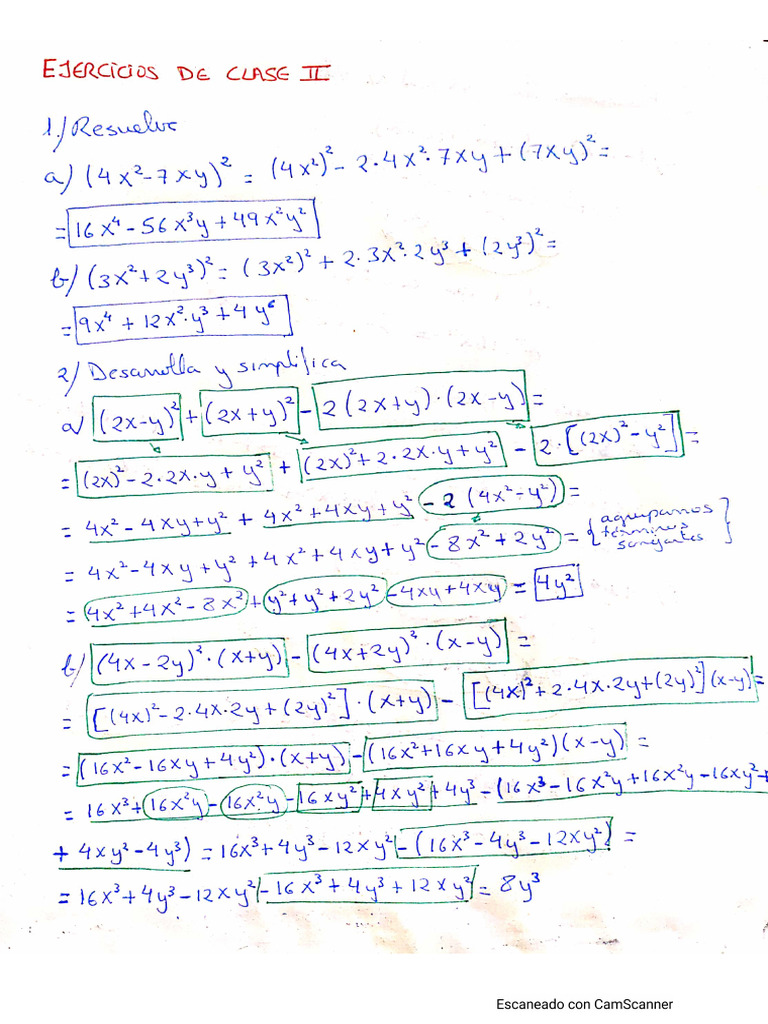 EJERCICIOS DE CLASE II
1./ Resuelve
a) (4x²-7xy)² = (4x²)² - 2·4x²·7xy + (7xy)² =
= 16x⁴ - 56x³y + 49x²y²
b) (3x²+2y³)² = (3x²)² + 2·3x²·2y³ + (2y³)² =
= 9x⁴ + 12x²·y³ + 4y⁶
2/ Desarrolla y simplifica
a) (2x-y)² + (2x+y)² - 2(2x+y)·(2x-y) =
= (2x)² - 2·2x·y + y² + (2x)² + 2·2x·y + y² - 2·[(2x)² - y²] =
= 4x² - 4xy + y² + 4x² + 4xy + y² - 2(4x² - y²) =
= 4x² - 4xy + y² + 4x² + 4xy + y² - 8x² + 2y² = {agrupamos términos semejantes}
= 4x² + 4x² - 8x² + y² + y² + 2y² - 4xy + 4xy = 4y²
b) (4x-2y)²·(x+y) - (4x+2y)²·(x-y) =
= [(4x)² - 2·4x·2y + (2y)²]·(x+y) - [(4x)² + 2·4x·2y + (2y)²](x-y) =
= (16x² - 16xy + 4y²)·(x+y) - (16x² + 16xy + 4y²)(x-y) =
= 16x³ + 16x²y - 16x²y - 16xy² + 4xy² + 4y³ - (16x³ - 16x²y + 16x²y - 16xy² +
+ 4xy² - 4y³) = 16x³ + 4y³ - 12xy² - (16x³ - 4y³ - 12xy²) =
= 16x³ + 4y³ - 12xy² - 16x³ + 4y³ + 12xy² = 8y³
Escaneado con CamScanner